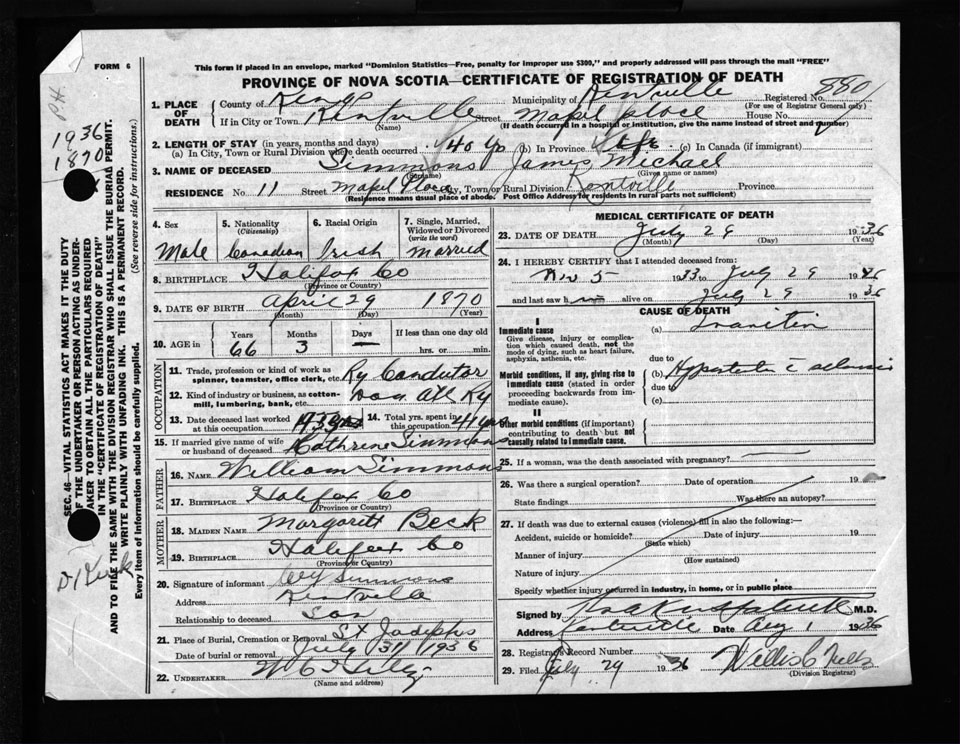 FORM 6
This form if placed in an envelope, marked "Dominion Statistics—Free, penalty for improper use $300," and properly addressed will pass through the mail "FREE"
PROVINCE OF NOVA SCOTIA—CERTIFICATE OF REGISTRATION OF DEATH
1936
1870
1. PLACE OF DEATH
County of Kings Municipality of Kentville Registered No. 880
(For use of Registrar General only)
If in City or Town Kentville Street Mapel place House No.
(Name) (If death occurred in a hospital or institution, give the name instead of street and number)
2. LENGTH OF STAY (in years, months and days)
(a) In City, Town or Rural Division where death occurred 40 yr (b) In Province life (c) In Canada (if immigrant)
3. NAME OF DECEASED Simmons James Michael
(Surname) (Given name or names)
RESIDENCE No. 11 Street Mapel Place City, Town or Rural Division Kentville Province
(Residence means usual place of abode. Post Office Address for residents in rural parts not sufficient)
4. Sex
Male
5. Nationality
(Citizenship)
Canadian
6. Racial Origin
Irish
7. Single, Married, Widowed or Divorced
(write the word)
Married
8. BIRTHPLACE Halifax Co
(Province or Country)
9. DATE OF BIRTH April 29 1870
(Month) (Day) (Year)
10. AGE in
Years Months Days If less than one day old
66 3 — hrs. or min.
OCCUPATION
11. Trade, profession or kind of work as spinner, teamster, office clerk, etc. Ry Condutor
12. Kind of industry or business, as cotton-mill, lumbering, bank, etc. Dom Atl Ry
13. Date deceased last worked at this occupation
14. Total yrs. spent in this occupation 41 yrs
15. If married give name of wife or husband of deceased Cathrine Simmons
FATHER
16. NAME William Simmons
17. BIRTHPLACE Halifax Co
(Province or Country)
MOTHER
18. MAIDEN NAME Margarett Beck
19. BIRTHPLACE Halifax Co
(Province or Country)
20. Signature of informant Simmons
Address Kentville
Relationship to deceased Son
21. Place of Burial, Cremation or Removal St Josephs
Date of burial or removal July 31 1936
22. UNDERTAKER
(Name and address)
MEDICAL CERTIFICATE OF DEATH
23. DATE OF DEATH July 29 1936
(Month) (Day) (Year)
24. I HEREBY CERTIFY that I attended deceased from:
Nov 5 1933 to July 29 1936
and last saw him alive on July 29 1936
CAUSE OF DEATH
I
Immediate cause
Give disease, injury or complication which caused death, not the mode of dying, such as heart failure, asphyxia, asthenia, etc.
(a)
due to
Morbid conditions, if any, giving rise to immediate cause (stated in order proceeding backwards from immediate cause).
(b)
due to
(c)
II
Other morbid conditions (if important) contributing to death but not causally related to immediate cause.
25. If a woman, was the death associated with pregnancy?
26. Was there a surgical operation? Date of operation 19
State findings Was there an autopsy?
27. If death was due to external causes (violence) fill in also the following:—
Accident, suicide or homicide? Date of injury 19
(State which)
Manner of injury
(How sustained)
Nature of injury
Specify whether injury occurred in industry, in home, or in public place
Signed by M.D.
Address Kentville Date Aug 1 1936
28. Registrar's Record Number
29. Filed July 29 1936 Willis C
(Division Registrar)
SEC. 46–VITAL STATISTICS ACT MAKES IT THE DUTY
OF THE UNDERTAKER OR PERSON ACTING AS UNDERTAKER TO OBTAIN ALL THE PARTICULARS REQUIRED
IN THE "CERTIFICATE OF REGISTRATION OF DEATH"
AND TO FILE THE SAME WITH THE DIVISION REGISTRAR WHO SHALL ISSUE THE BURIAL PERMIT.
WRITE PLAINLY WITH UNFADING INK. THIS IS A PERMANENT RECORD.
Every item of Information should be carefully supplied. (See reverse side for instructions.)